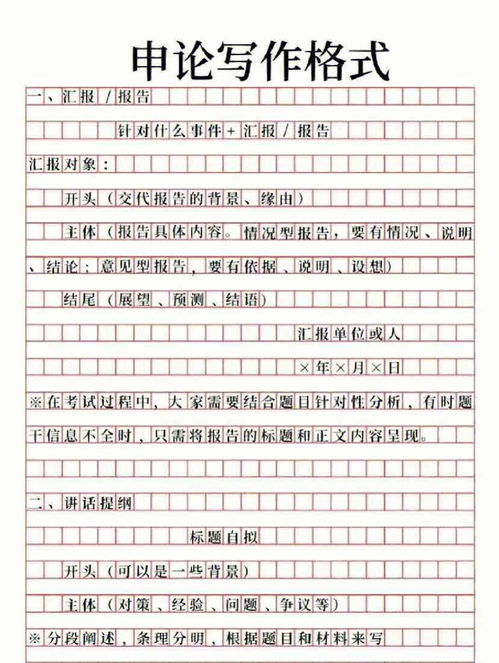 申论写作格式
一、汇报/报告
针对什么事件+汇报/报告
汇报对象：
开头（交代报告的背景、缘由）
主体（报告具体内容。情况型报告，要有情况、说明
、结论；意见型报告，要有依据、说明、设想）
结尾（展望、预测、结语）
汇报单位或人
×年×月×日
※在考试过程中，大家需要结合题目针对性分析，有时题
干信息不全时，只需将报告的标题和正文内容呈现。
二、讲话提纲
标题自拟
开头（可以是一些背景）
主体（对策、经验、问题、争议等）
※分段阐述，条理分明，根据题目和材料来写